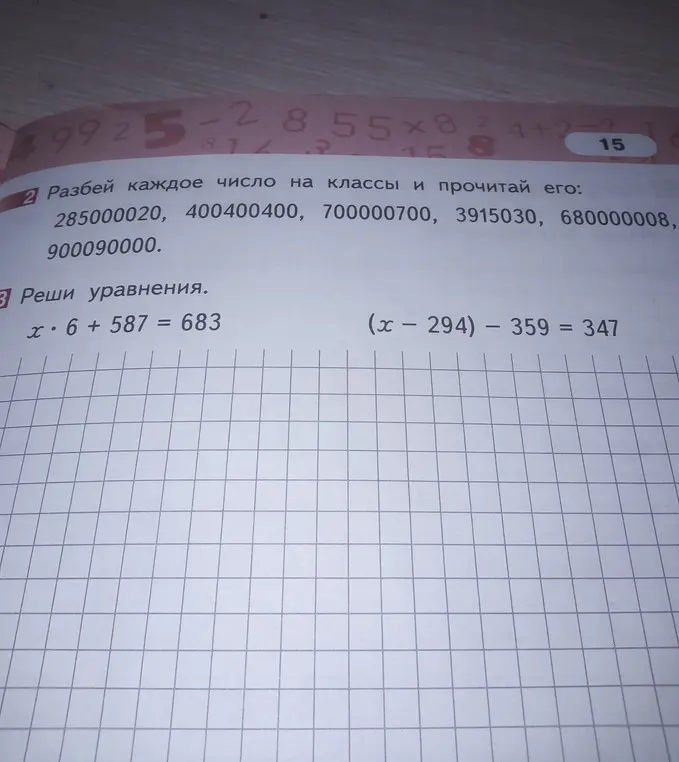 9925-2855×8
15
2 Разбей каждое число на классы и прочитай его:
285000020, 400400400, 700000700, 3915030, 680000008,
900090000.
3 Реши уравнения.
x · 6 + 587 = 683
(x − 294) − 359 = 347